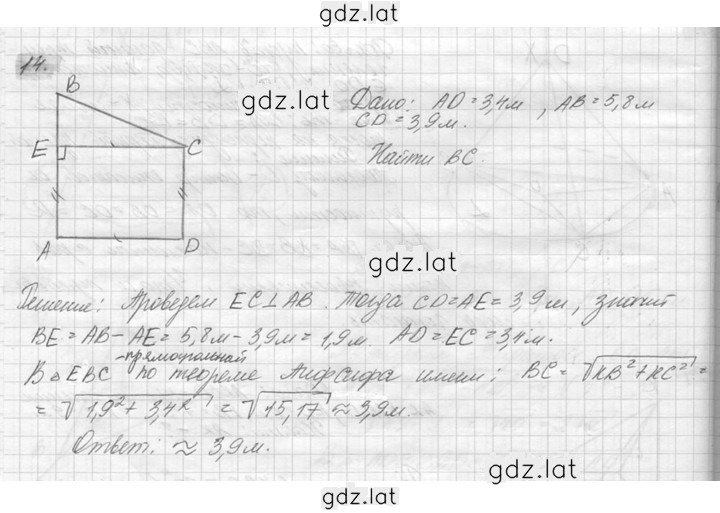 gdz.lat
14.
B
gdz.lat
Дано: AD = 3,4м , AB = 5,8м
CD = 3,9м.
E
C
Найти BC.
A
D
gdz.lat
Решение: Проведем EC⊥AB. Тогда CD=AE=3,9м, значит
BE = AB − AE = 5,8м − 3,9м = 1,9м. AD = EC = 3,4м.
-прямоугольный
В △EBC по теореме Пифагора имеем: BC = √KB²+KC² =
= √1,9² + 3,4² = √15,17 ≈ 3,9м.
Ответ: ≈ 3,9м.
gdz.lat
gdz.lat